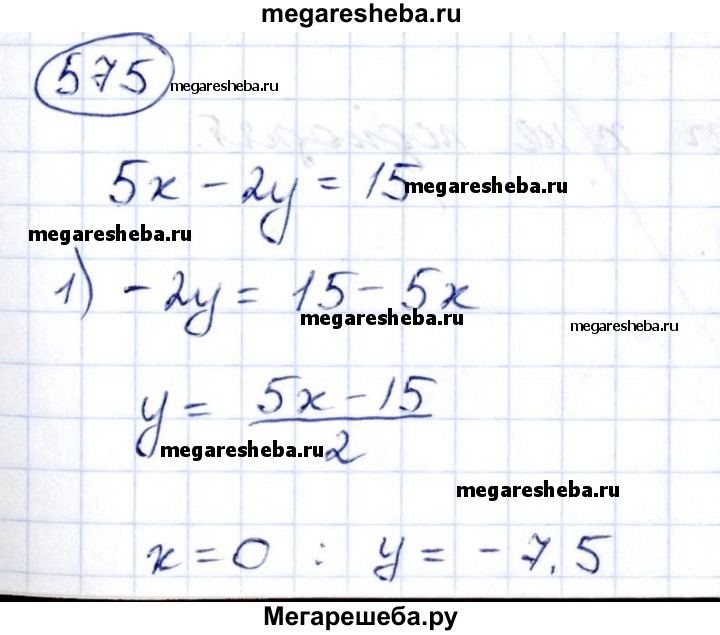 megaresheba.ru
575 megaresheba.ru
5x - 2y = 15 megaresheba.ru
megaresheba.ru
1) - 2y = 15 - 5x
megaresheba.ru
megaresheba.ru
y = (5x - 15)/2
megaresheba.ru
megaresheba.ru
x = 0 : y = - 7,5
Мегарешеба.ру